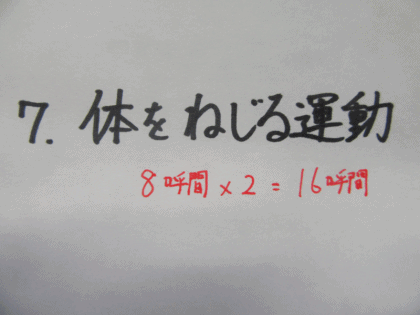 7. 体をねじる運動
8呼間×2=16呼間